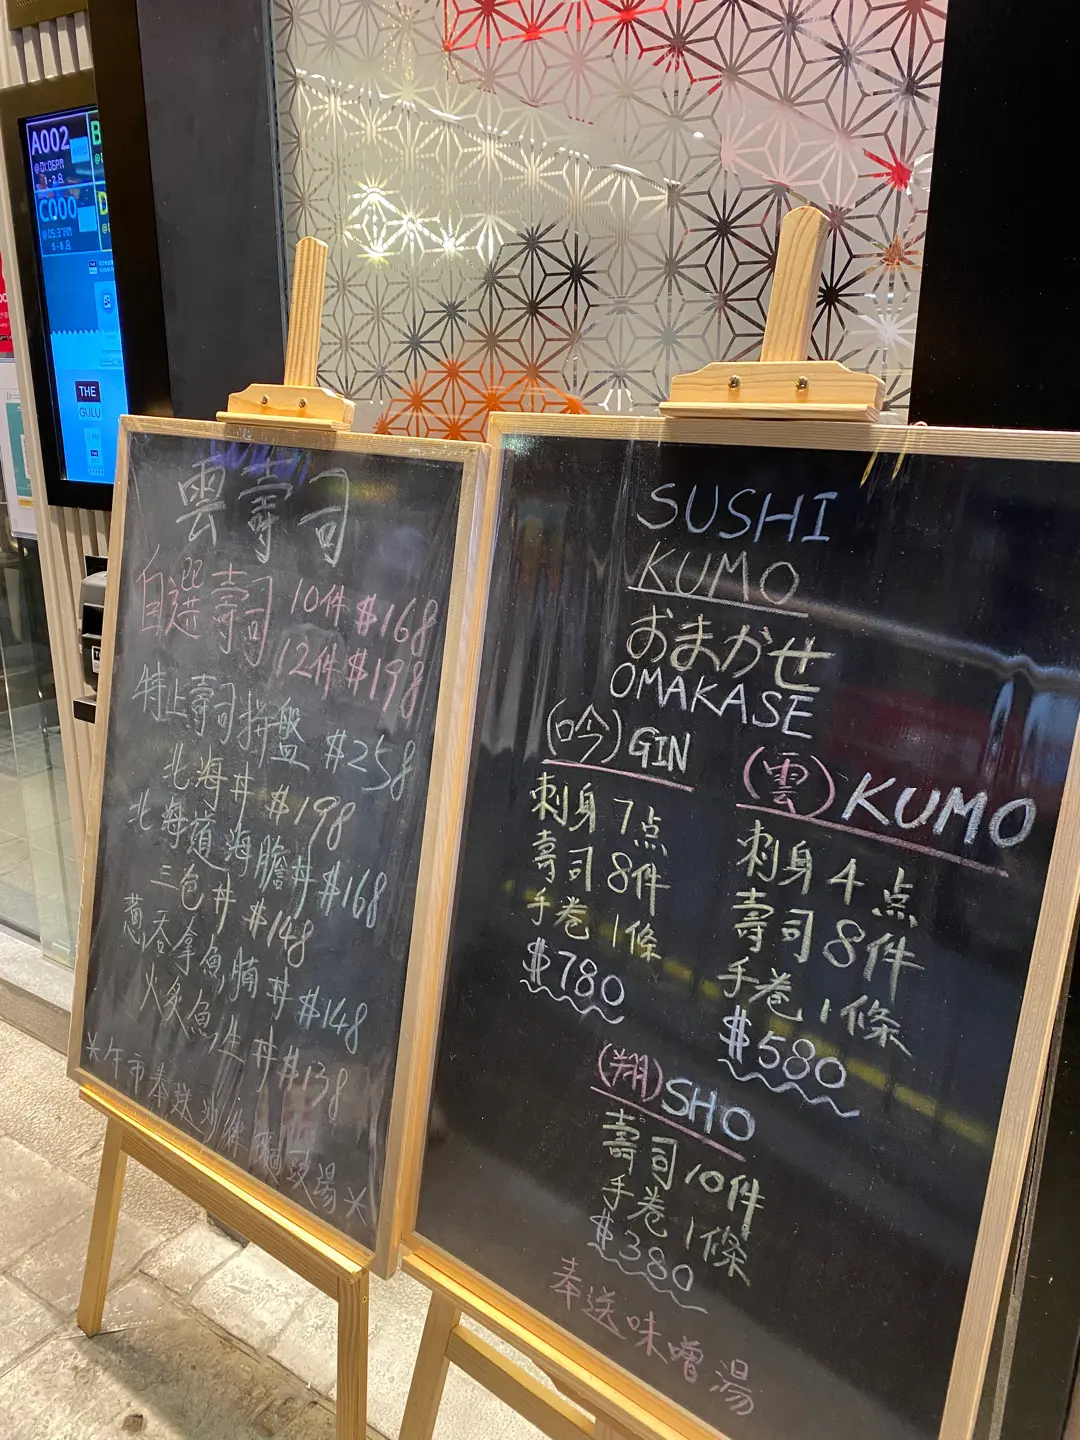 A002
@01:06PM
C000
@05:37PM
THE
GULU
雲壽司
自選壽司 10件 $168
12件 $198
特上壽司拼盤 $258
北海丼 $198
北海道海膽丼 $168
三色丼 $148
蔥吞拿魚腩丼 $148
火炙魚生丼 $138
*午市奉送
湯*
SUSHI
KUMO
おまかせ
OMAKASE
(吟) GIN
刺身 7点
壽司 8件
手巻 1條
$780
(雲) KUMO
刺身 4点
壽司 8件
手巻 1條
$580
(翔) SHO
壽司 10件
手巻 1條
$380
奉送味噌湯